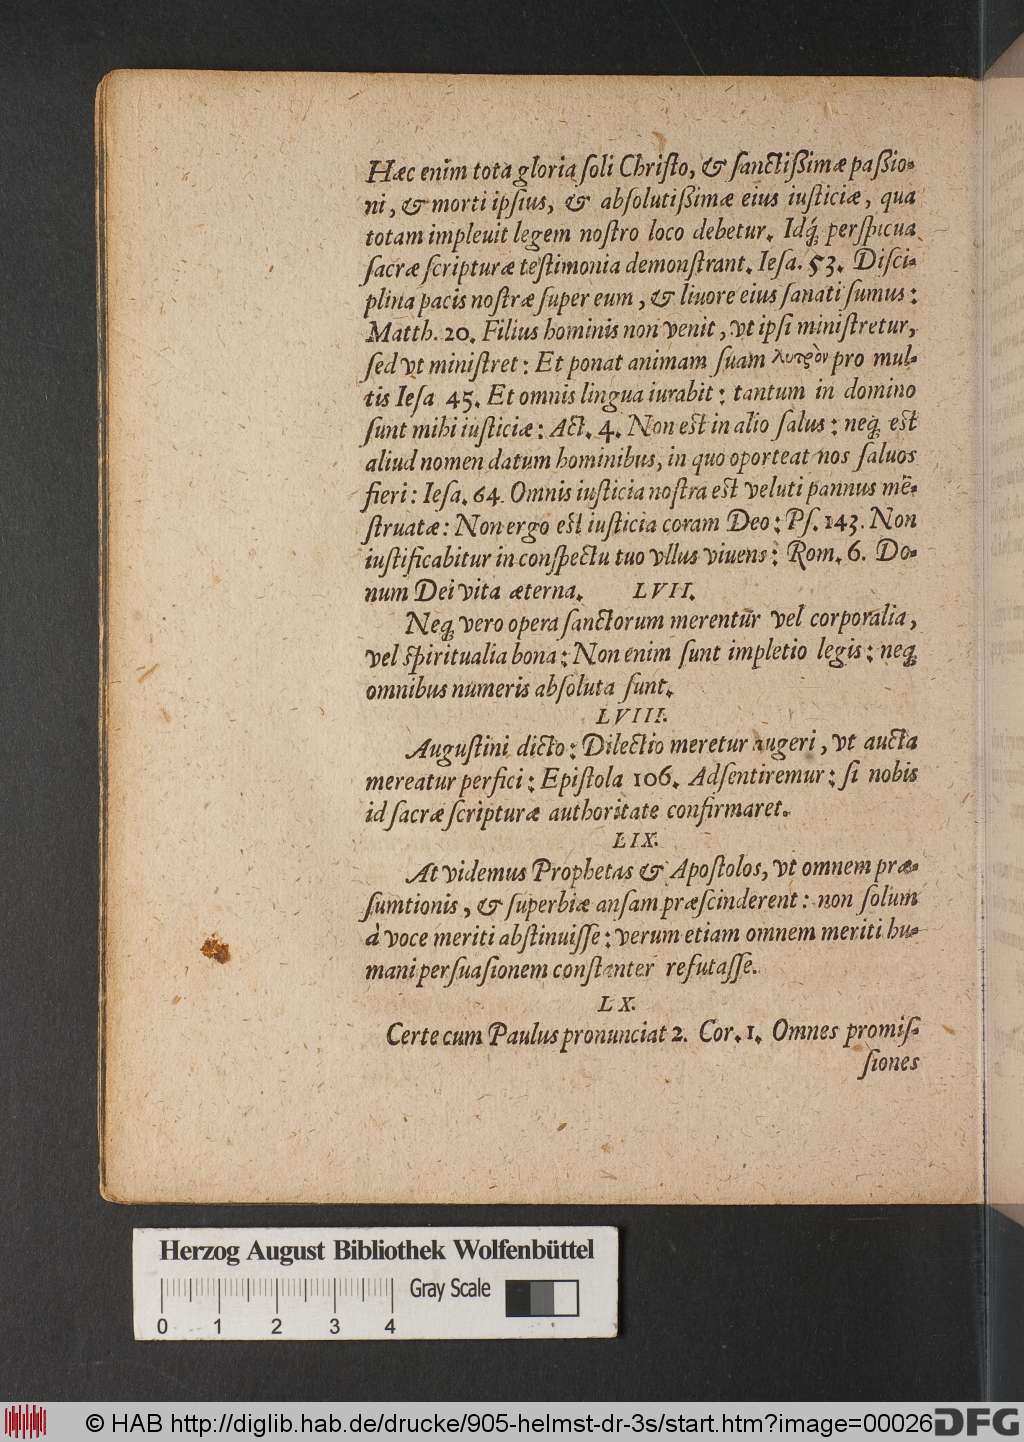 Hæc enim tota gloria ſoli Chriſto, & ſanctißimæ paßio-
ni, & morti ipſius, & abſolutißimæ eius iuſticiæ, qua
totam impleuit legem noſtro loco debetur. Idq́; perſpicua
ſacræ ſcripturæ teſtimonia demonſtrant. Ieſa. 53. Diſci-
plina pacis noſtræ ſuper eum, & liuore eius ſanati ſumus:
Matth. 20. Filius hominis non venit, vt ipſi miniſtretur,
ſed vt miniſtret: Et ponat animam ſuam λυτρὸν pro mul-
tis Ieſa 45. Et omnis lingua iurabit: tantum in domino
ſunt mihi iuſticiæ: Act. 4. Non eſt in alio ſalus: neq; eſt
aliud nomen datum hominibus, in quo oporteat nos ſaluos
fieri: Ieſa. 64. Omnis iuſticia noſtra eſt veluti pannus mē-
ſtruatæ: Non ergo eſt iuſticia coram Deo: Pſ. 143. Non
iuſtificabitur in conſpectu tuo vllus viuens: Rom. 6. Do-
num Dei vita æterna. LVII.
Neq; vero opera ſanctorum merentur vel corporalia,
vel ſpiritualia bona: Non enim ſunt impletio legis: neq;
omnibus numeris abſoluta ſunt.
LVIII.
Auguſtini dicto: Dilectio meretur augeri, vt aucta
mereatur perfici: Epiſtola 106. Adſentiremur: ſi nobis
id ſacræ ſcripturæ authoritate confirmaret.
LIX.
At videmus Prophetas & Apoſtolos, vt omnem præ-
ſumtionis, & ſuperbiæ anſam præſcinderent: non ſolum
à voce meriti abſtinuiſſe: verum etiam omnem meriti hu-
mani perſuaſionem conſtanter refutaſſe.
LX.
Certe cum Paulus pronunciat 2. Cor. 1. Omnes promiſ-
ſiones
Herzog August Bibliothek Wolfenbüttel
Gray Scale
0 1 2 3 4
© HAB http://diglib.hab.de/drucke/905-helmst-dr-3s/start.htm?image=00026
DFG